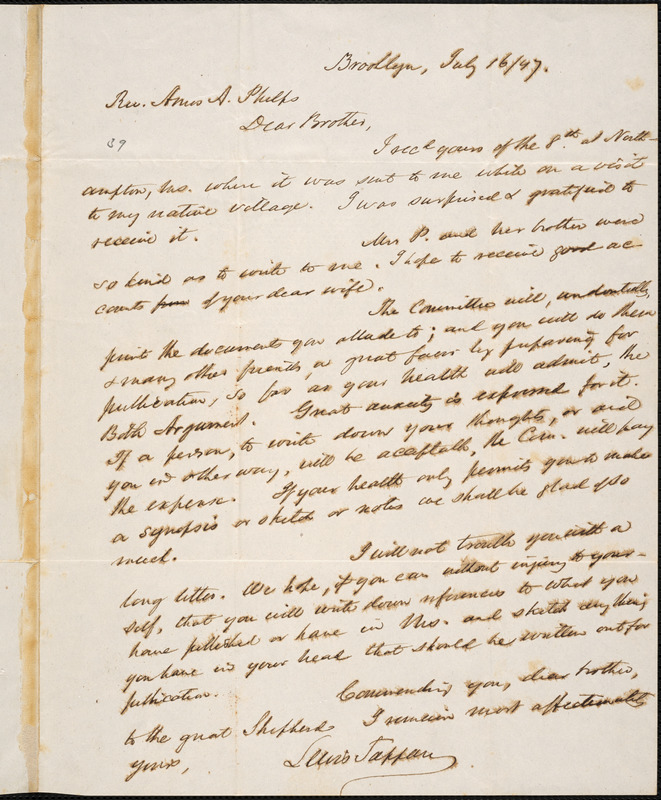 Brooklyn, July 16/47.
Rev. Amos A. Phelps
Dear Brother,
39
I recd yours of the 8th at North-
ampton, Ms. where it was sent to me while on a visit
to my native village. I was surprised & gratified to
receive it.
Mrs P. and her brother were
so kind as to write to me. I hope to receive good ac
counts from of your dear wife.
The Committee will, undoubtedly,
print the document you allude to; and you will do them
& many other friends a great favor by preparing for
publication, so far as your health will admit, the
Bible Argument. Great anxiety is expressed for it.
If a person, to write down your thoughts, or aid
you in other way, will be acceptable, the Com. will pay
the expense. If your health only permits you to make
a synopsis or sketch or notes we shall be glad of so
much.
I will not trouble you with a
long letter. We hope, if you can without injury to your-
self, that you will write down references to what you
have published or have in Ms. and sketch anything
you have in your head that should be written out for
publication.
Commending you, dear brother,
to the great Shepherd I remain most affectionately
yours,
Lewis Tappan